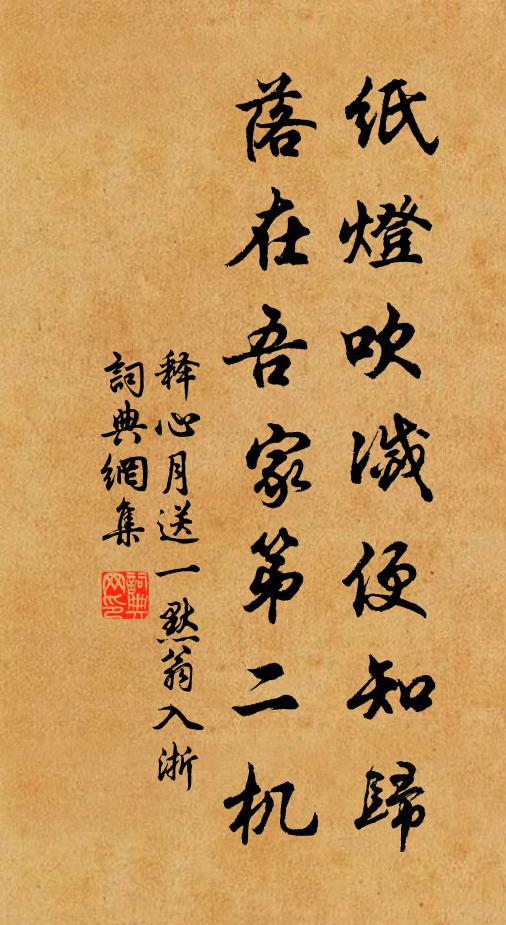 紙燈吹滅便知歸
落在吾家第二机
释心月送一默翁入浙
詞典網集
詞典网印